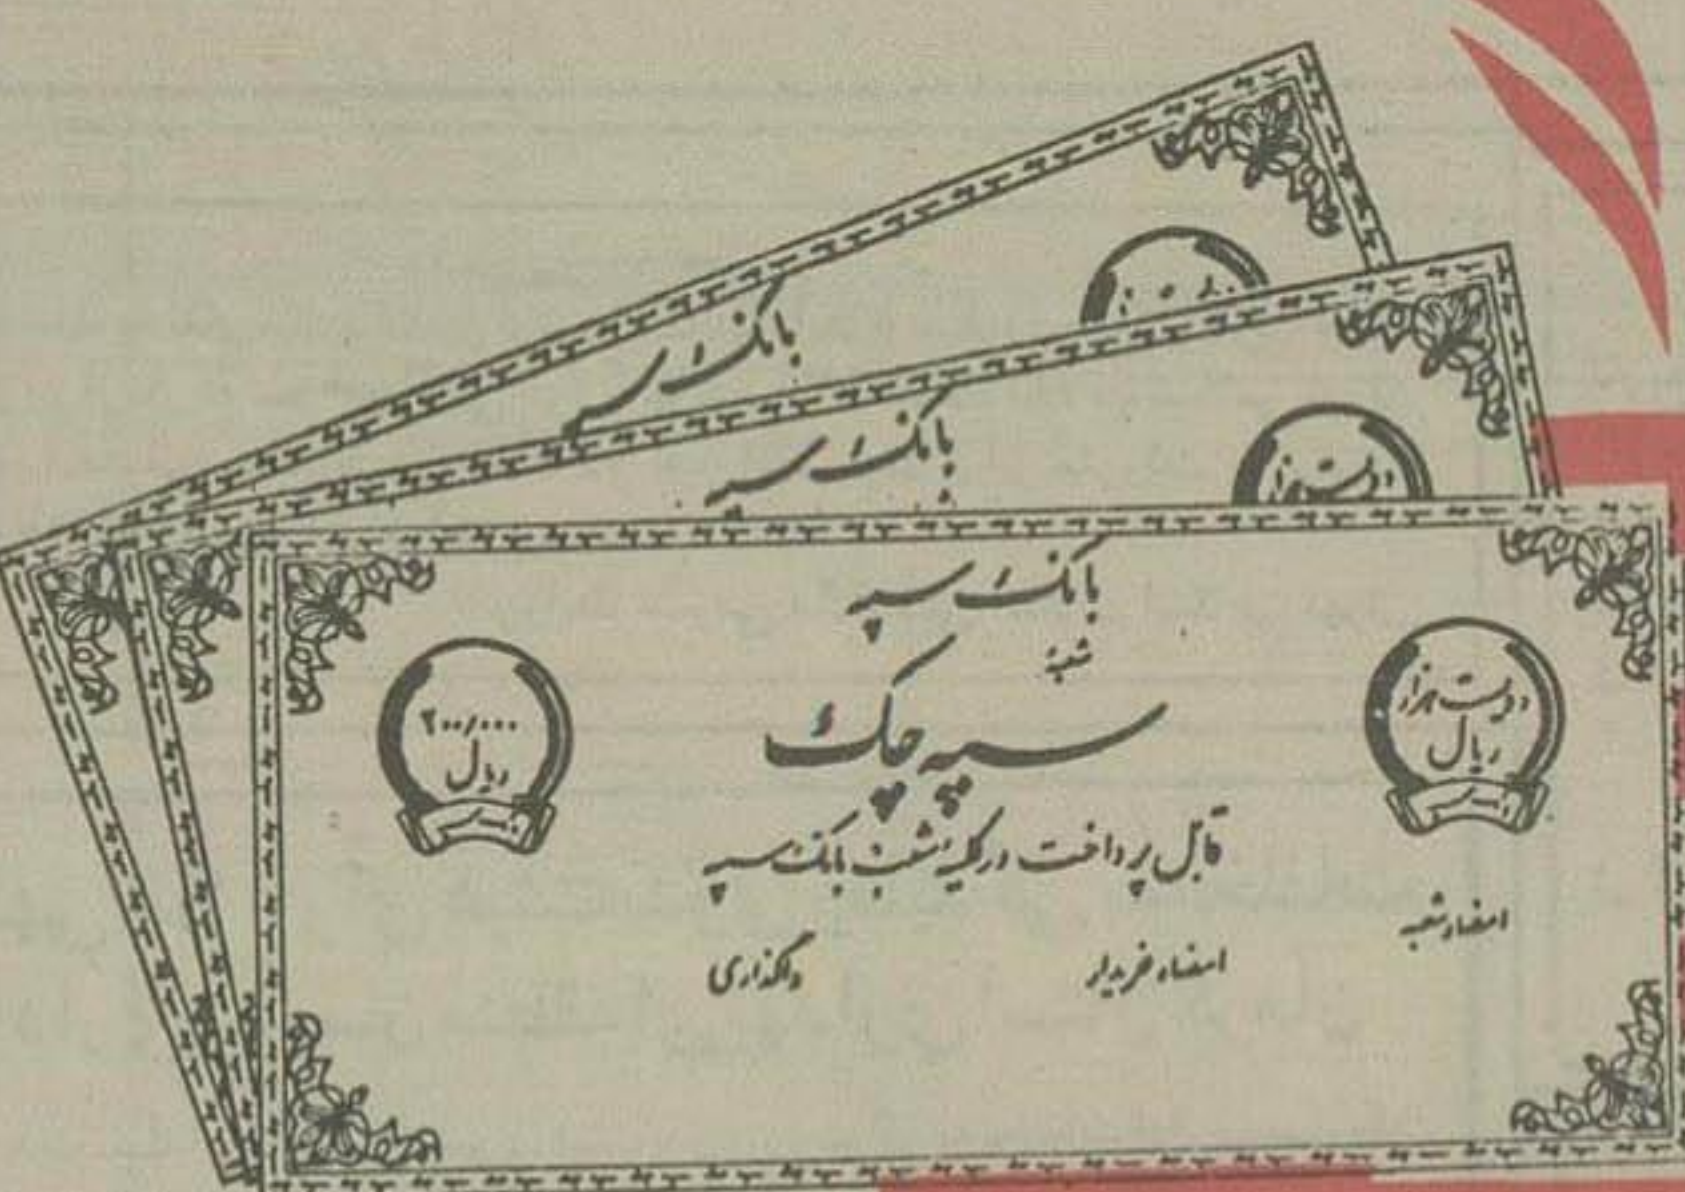 بانک سپه
بانک سپه
دویست هزار
بانک سپه
شعبه
دویست هزار
ریال
سپه چک
۲۰۰/۰۰۰
ریال
قابل پرداخت در کلیه شعب بانک سپه
امضاء شعبه
امضاء خریدار
واگذاری